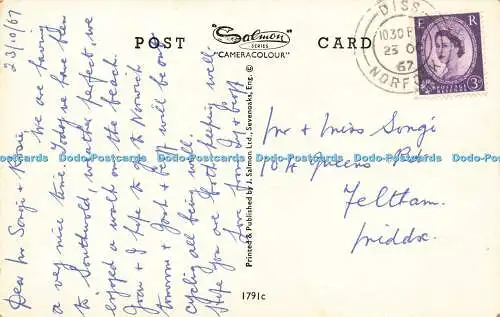 23/10/67
Dear Mr Songi + Rosie,
We are having
a very nice time. Today we have been
to Southwold, weather perfect, we
enjoyed a walk on the beach.
Joan + I hope to go to Norwich
tomorrow + Jock + Geoff will be out
cycling all being well.
Hope you are both keeping well.
Love from Joy + Geoff
POST
Salmon
SERIES
"CAMERACOLOUR"
CARD
Printed & Published by J. Salmon Ltd., Sevenoaks, Eng. ©
1791c
DISS
1030
23 OC
67
NORFO
E R
POSTAGE
3D
Mr + Miss Songi
104 Queens
Feltham.
Middx.
Dodo-Postcards Dodo-Postcards Dodo-Postcards Dodo-Postcards